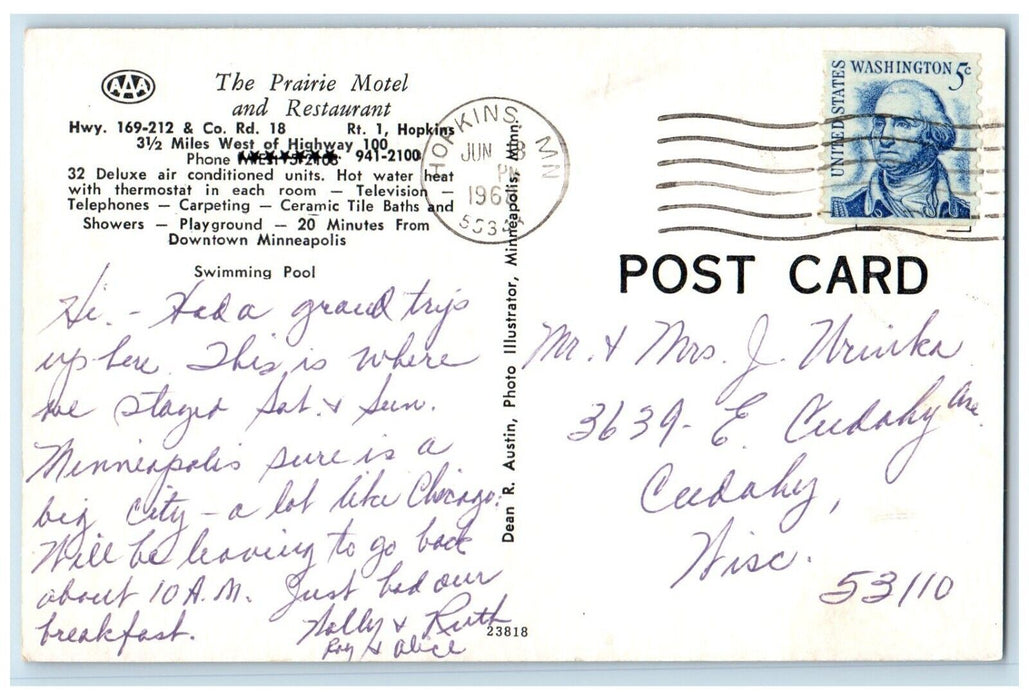 AAA
The Prairie Motel
and Restaurant
Hwy. 169-212 & Co. Rd. 18 Rt. 1, Hopkins
3½ Miles West of Highway 100
Phone 941-2100
32 Deluxe air conditioned units. Hot water heat
with thermostat in each room — Television —
Telephones — Carpeting — Ceramic Tile Baths and
Showers — Playground — 20 Minutes From
Downtown Minneapolis
Swimming Pool
Hi. - Had a grand trip
up here. This is where
we stayed Sat. & Sun.
Minneapolis sure is a
big city - a lot like Chicago.
Will be leaving to go back
about 10 A.M. Just had our
breakfast.
Wally & Ruth
Roy & Alice
Dean R. Austin, Photo Illustrator, Minneapolis, Minn.
23818
HOPKINS MN
JUN
PM
UNITED STATES
WASHINGTON 5c
POST CARD
Mr. & Mrs. J. Wrinka
3639 - E. Cudahy Ave.
Cudahy,
Wisc.
53110